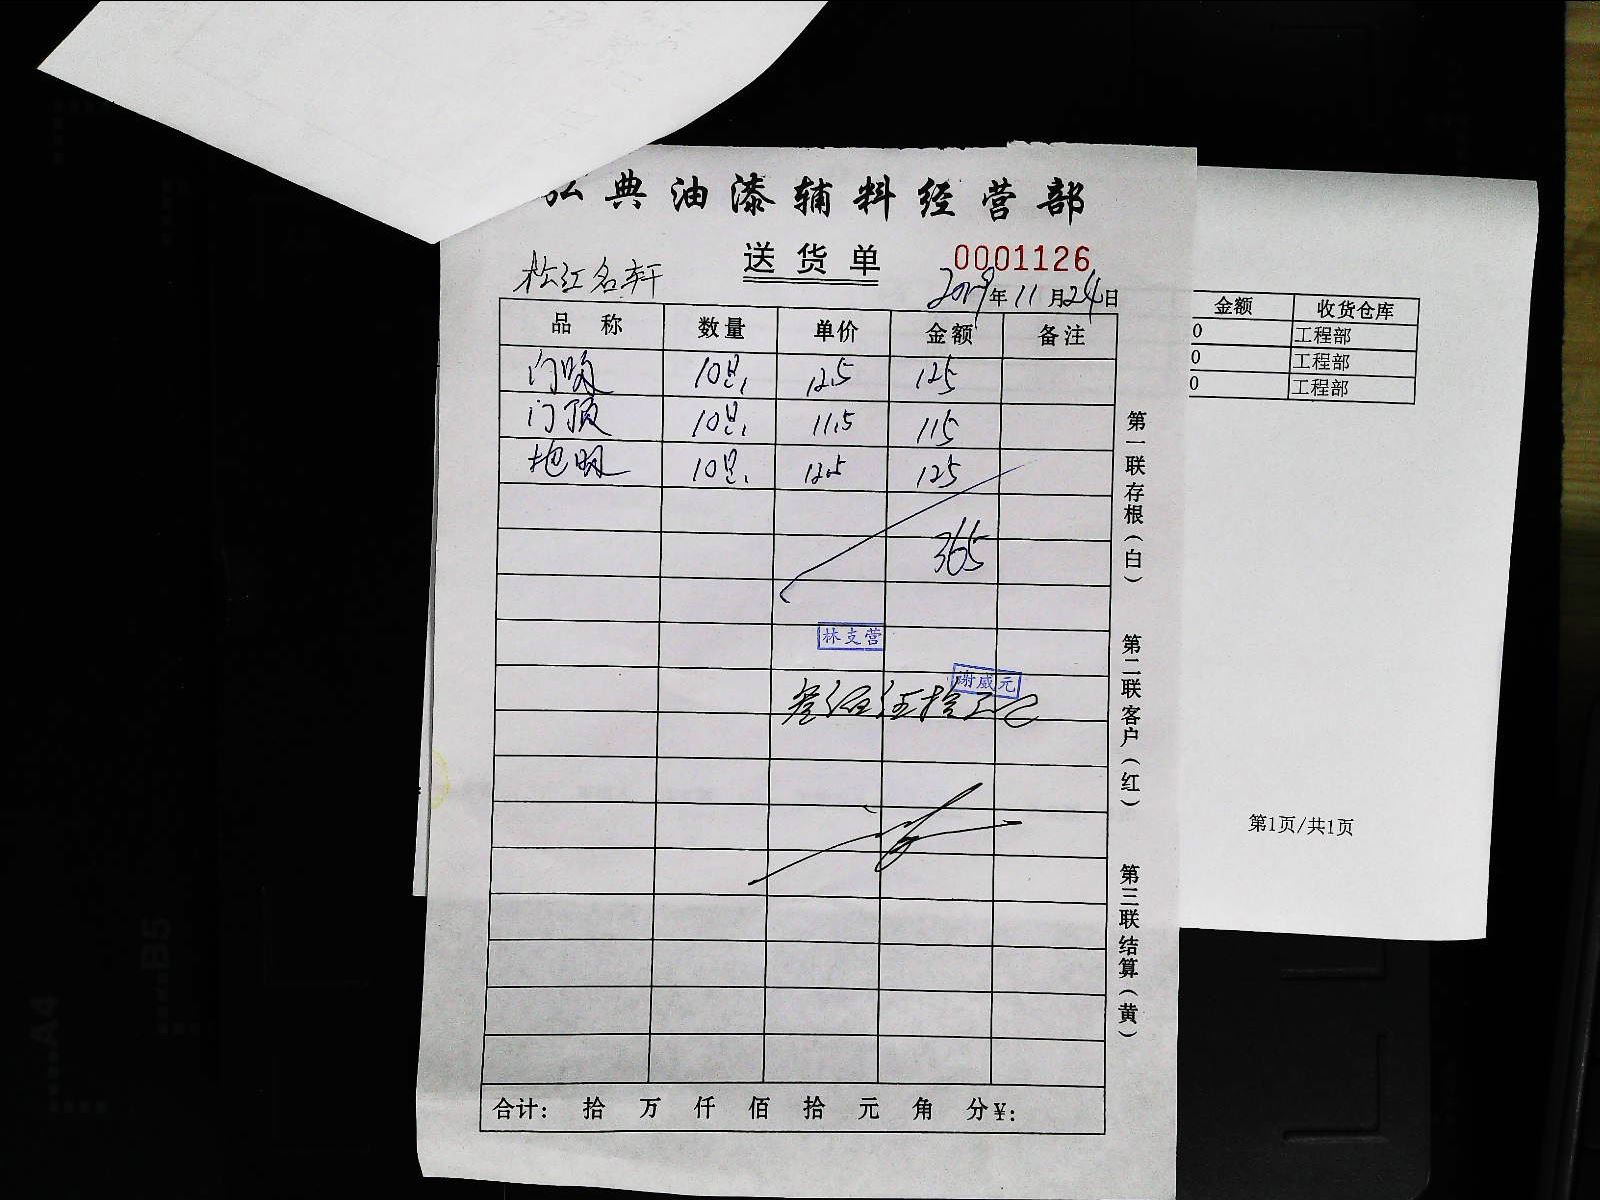 弘典油漆辅料经营部
送货单 0001126
松江名轩 2019年11月24日
品称 数量 单价 金额 备注
门吸 10只 12.5 125
门顶 10只 11.5 115
10只 12.5 125
365
林支营
谢威元
合计: 拾 万 仟 佰 拾 元 角 分¥:
第一联存根(白)
第二联客户(红)
第三联结算(黄)
金额 收货仓库
0 工程部
0 工程部
0 工程部
第1页/共1页
A4
B5